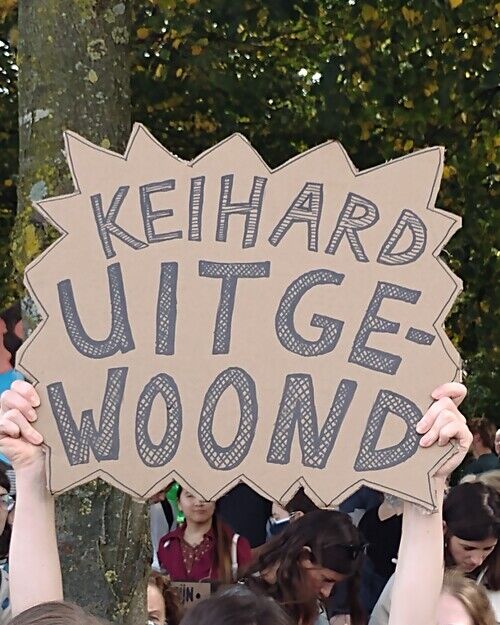 KEIHARD
UITGE-
WOOND